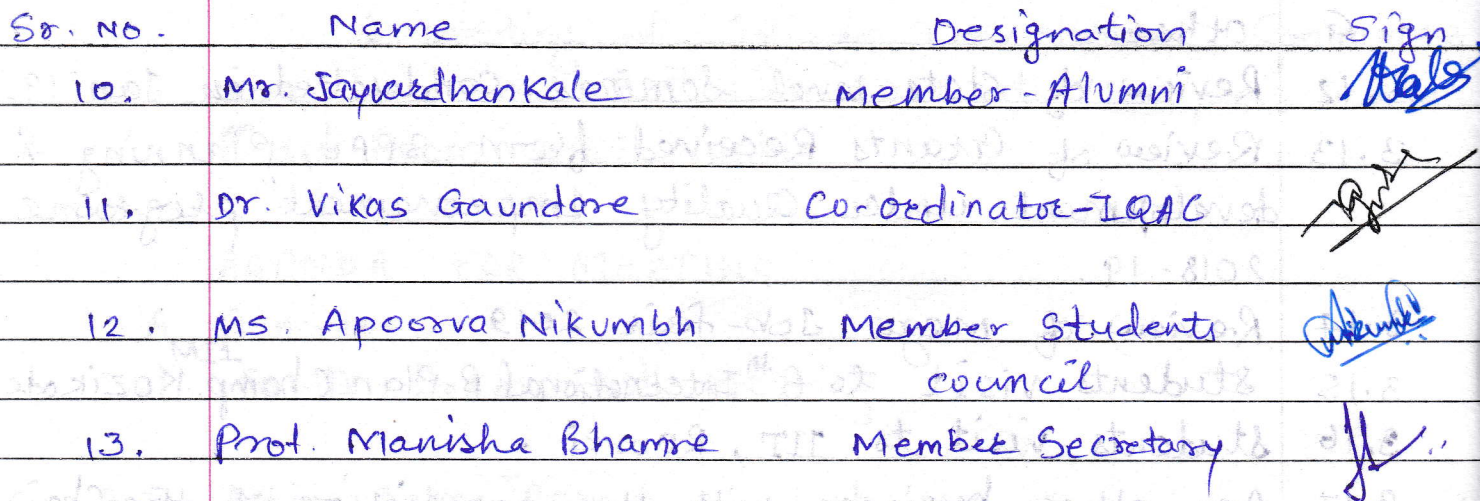 Sr. No. Name Designation Sign
10. Mr. Jaywardhan Kale Member - Alumni Kale
11. Dr. Vikas Gaundare Co-ordinator-IQAC
12. Ms. Apoorva Nikumbh Member Students Nikumbh
council
13. Prof. Manisha Bhamre. Member Secretary